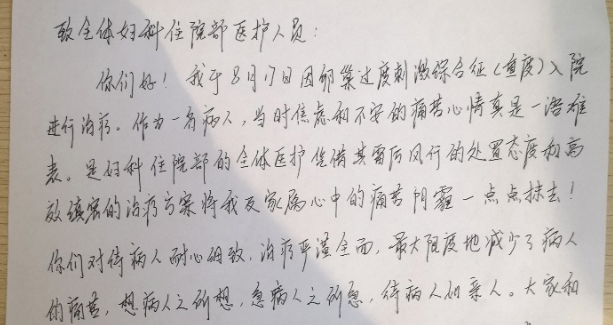 致全体妇科住院部医护人员:
你们好！我于8月17日因卵巢过度刺激综合征(重度)入院
进行治疗。作为一名病人,当时焦虑和不安的痛苦心情真是一语难
表。是妇科住院部的全体医护凭借其雷厉风行的处置态度和高
效缜密的治疗方案将我及家属心中的痛苦阴霾一点点抹去!
你们对待病人耐心细致,治疗严谨全面,最大限度地减少了病人
的痛苦,想病人之所想,急病人之所急,待病人如亲人。大家和